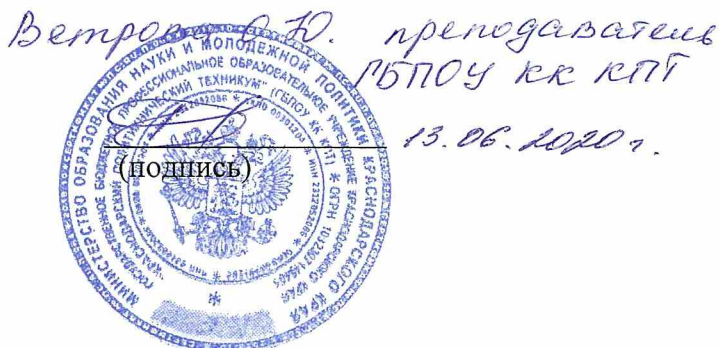 Ветрова О.Ю. преподаватель
ГБПОУ КК КПТ
13.06.2020 г.
(подпись)
МИНИСТЕРСТВО ОБРАЗОВАНИЯ НАУКИ И МОЛОДЕЖНОЙ ПОЛИТИКИ КРАСНОДАРСКОГО КРАЯ
ГОСУДАРСТВЕННОЕ БЮДЖЕТНОЕ ПРОФЕССИОНАЛЬНОЕ ОБРАЗОВАТЕЛЬНОЕ УЧРЕЖДЕНИЕ КРАСНОДАРСКОГО КРАЯ
"КРАСНОДАРСКИЙ ТЕХНИКУМ" (ГБПОУ КК КПТ) * ОГРН